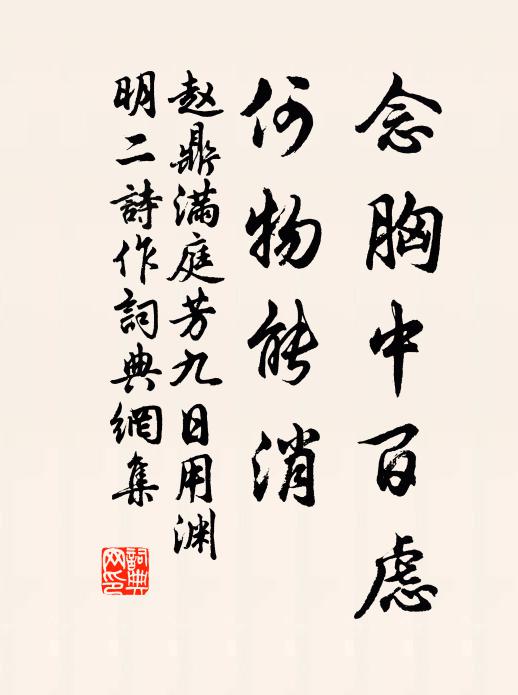 念胸中百慮
何物能消
赵鼎满庭芳九日用渊
明二詩作詞典網集
詞典
网印